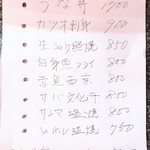 うな丼 1900
カツオ刺身 900
生ニシン塩焼 850
白身魚フライ 850
赤魚西京 800
サバ文化干 800
サンマ塩焼 800
いわし塩焼 750